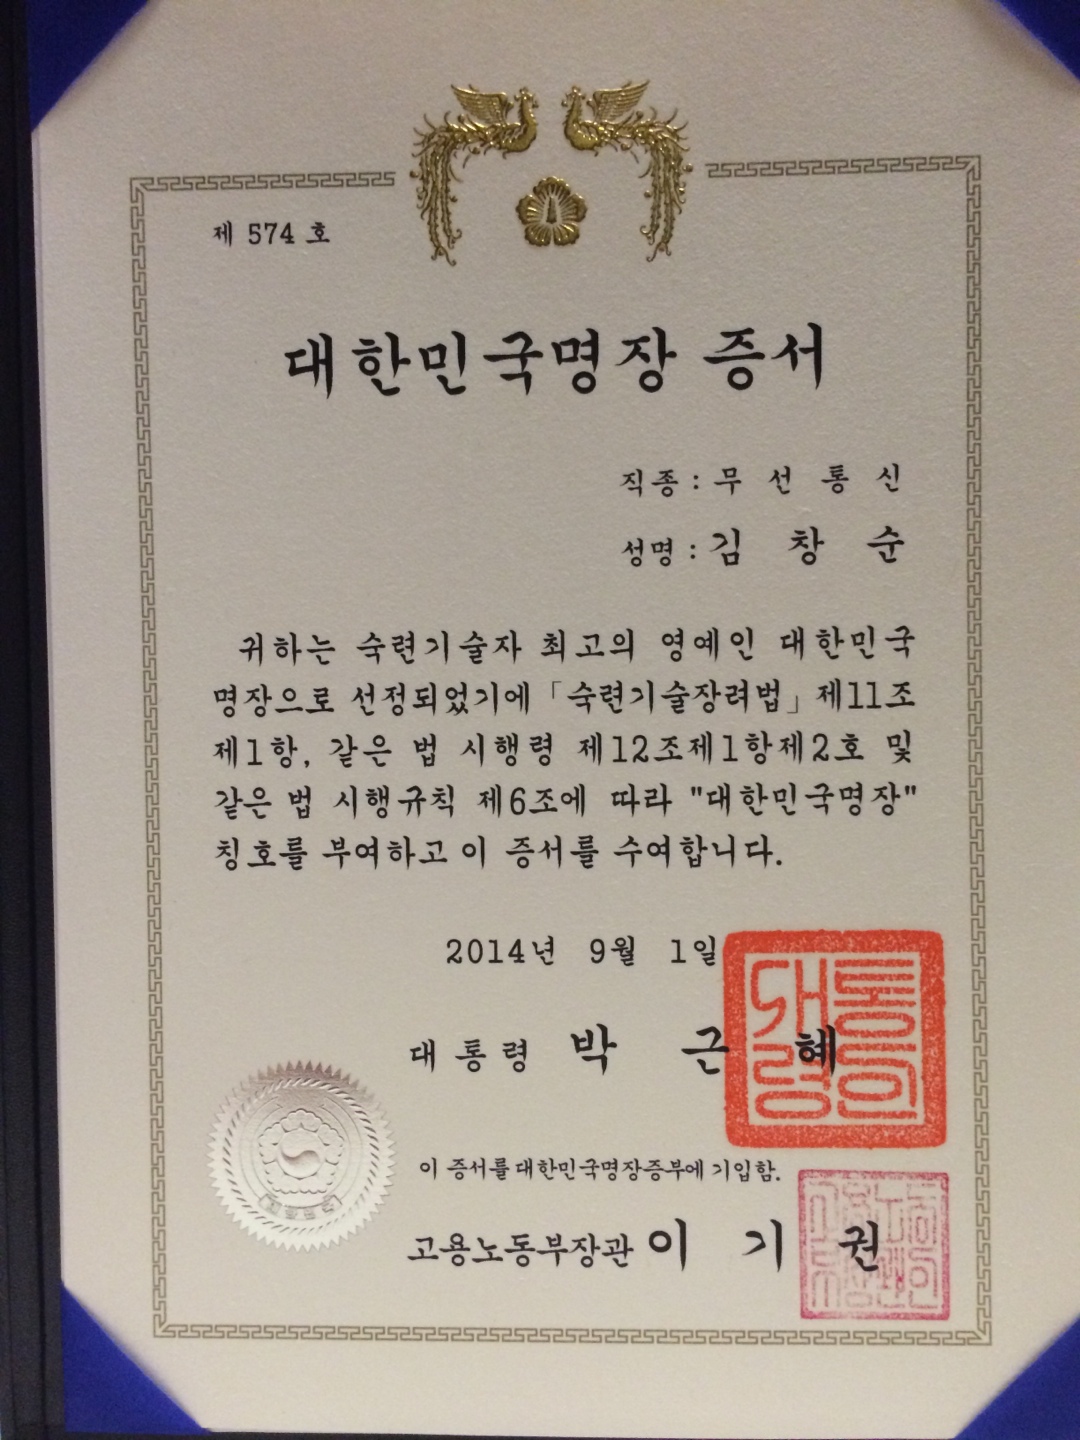 제 574 호
대한민국명장 증서
직종 : 무 선 통 신
성명 : 김 창 순
귀하는 숙련기술자 최고의 영예인 대한민국
명장으로 선정되었기에 「숙련기술장려법」 제11조
제1항, 같은 법 시행령 제12조제1항제2호 및
같은 법 시행규칙 제6조에 따라 "대한민국명장"
칭호를 부여하고 이 증서를 수여합니다.
2014년 9월 1일
대통령 박 근 혜
대통령의인
이 증서를 대한민국명장증부에 기입함.
고용노동부장관 이 기 권